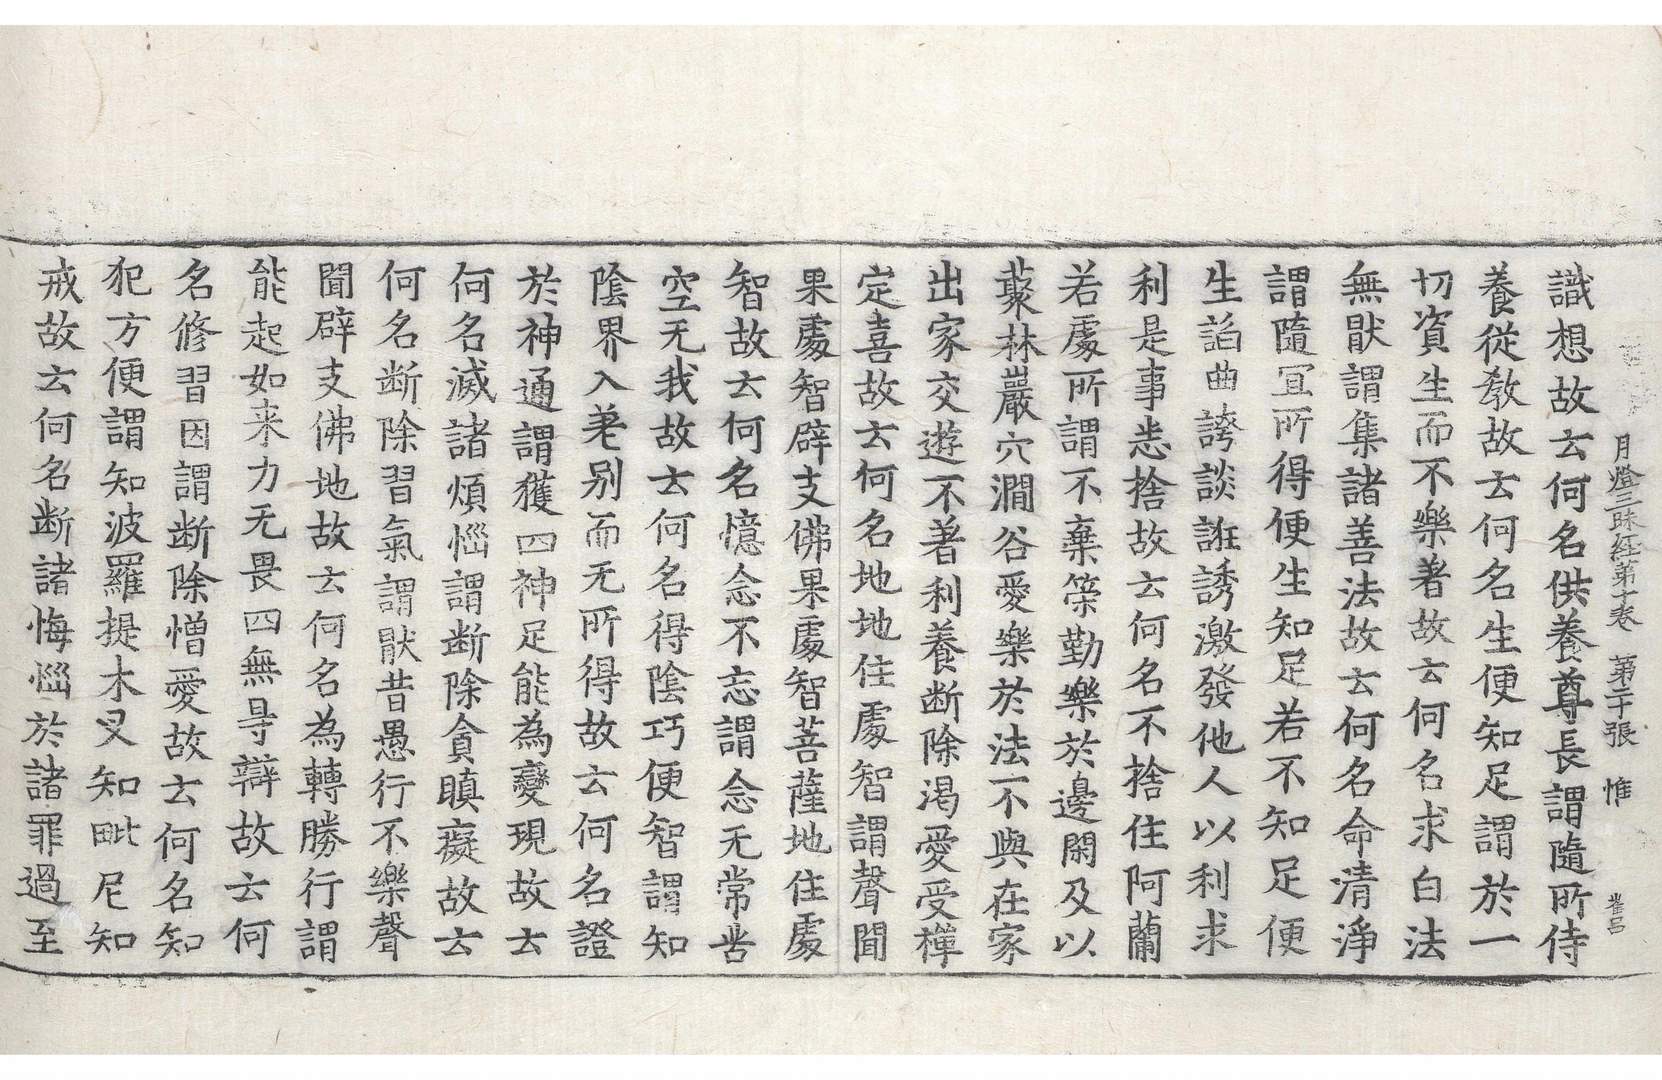 月燈三昧經第十卷 第二十張 惟
識想故云何名供養尊長謂隨所侍
養從教故云何名生便知足謂於一
切資生而不樂著故云何名求白法
無猒謂集諸善法故云何名命清淨
謂隨冝所得便生知足若不知足便
生謟曲誇談誑誘激發他人以利求
利是事悉捨故云何名不捨住阿蘭
若處所謂不棄策勤樂於邊閑及以
藂林巖穴澗谷愛樂於法不與在家
出家交遊不著利養断除渴愛受禪
定喜故云何名地地住處智謂聲聞
果處智辟支佛果處智菩薩地住處
智故云何名憶念不忘謂念无常苦
空无我故云何名得陰巧便智謂知
陰界入差别而无所得故云何名證
於神通謂獲四神足能為變現故云
何名滅諸煩惱謂断除貪瞋癡故云
何名断除習氣謂猒昔愚行不樂聲
聞辟支佛地故云何名為轉勝行謂
能起如来力无畏四無㝵辯故云何
名修習因謂断除憎愛故云何名知
犯方便謂知波羅提木叉知毗尼知
戒故云何名断諸悔惱於諸罪過至